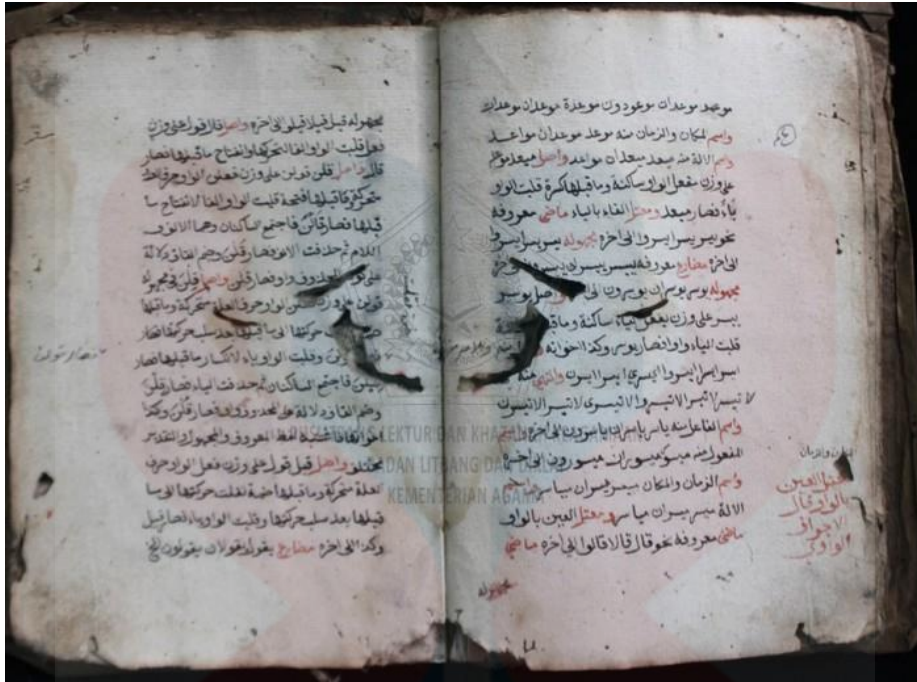 موعد موعدان موعودون موعدة موعدان موعدات
واسم المكان والزمان منه موعد موعدان مواعد
واسم الالة منه ميعد ميعدان مواعد واصل ميعد موعد
على وزن مفعل الواو ساكنة وما قبلها كسرة قلبت الواو
ياء فصار ميعد ومعتل الفاء بالياء ماضى معروفه
نحو يسر يسرا يسروا الى اخره مجهوله يسر يسرا يسروا
الى اخره مضارع معروفه ييسر ييسران ييسرون
مجهوله يوسر يوسران يوسرون الى واصل يوسر
ييسر على وزن يفعل ياء ساكنة وما
قلبت الياء واوا فصار يوسر وكذا اخواته
ايسر ايسرا ايسروا ايسرى ايسرا ايسرن والنهى منه
لا تيسر لا تيسرا لا تيسروا لا تيسرى لا تيسرا لا تيسرن
واسم الفاعل منه ياسر ياسران ياسرون الى اخره واسم
المفعول منه ميسور ميسوران ميسورون الى اخره
واسم الزمان والمكان ميسر ميسران مياسر واسم
الالة ميسر ميسران مياسر ومعتل العين بالواو
ماضى معروفه نحو قال قالا قالوا الى اخره ماضى
مجهوله
معتل العين
بالواو يقال
الاجوف
الواوى
مجهوله قيل قيلا قيلوا الى اخره واصل قال قول على وزن
فعل قلبت الواو الفا لتحركها وانفتاح ما قبلها فصار
قال واصل قلن قولن على وزن فعلن الواو حرف العلة
متحركة وما قبلها فتحة قلبت الواو الفا لانفتاح ما
قبلها فصار قالن فاجتمع الساكنان وهما الالف و
اللام ثم حذفت الالف فصار قلن وضم القاف دلالة
على واو فصار قلن واصل قلن فى مجهوله
قولن على وزن فعلن الواو حرف العلة متحركة وما قبلها
حركتها الى ما قبلها بعد سلب حركتها فصار
وقلبت الواو ياء لانكسار ما قبلها فصار
قيلن فاجتمع الساكنان ثم حذفت الياء فصار قلن
وضم القاف دلالة على محذوف واو فصار قلن وكذا
اخواتها لفظ المعروف والمجهول والتقدير
مختلف واصل قيل قول على وزن فعل الواو حرف
العلة متحركة وما قبلها ضمة نقلت حركتها الى ما
قبلها بعد سلب حركتها وقلبت الواو ياء فصار قيل
وكذا الى اخره مضارع يقول يقولان يقولون الخ
PUSLITBANG LEKTUR DAN KHAZANAH KEAGAMAAN
BADAN LITBANG DAN DIKLAT
KEMENTERIAN AGAMA